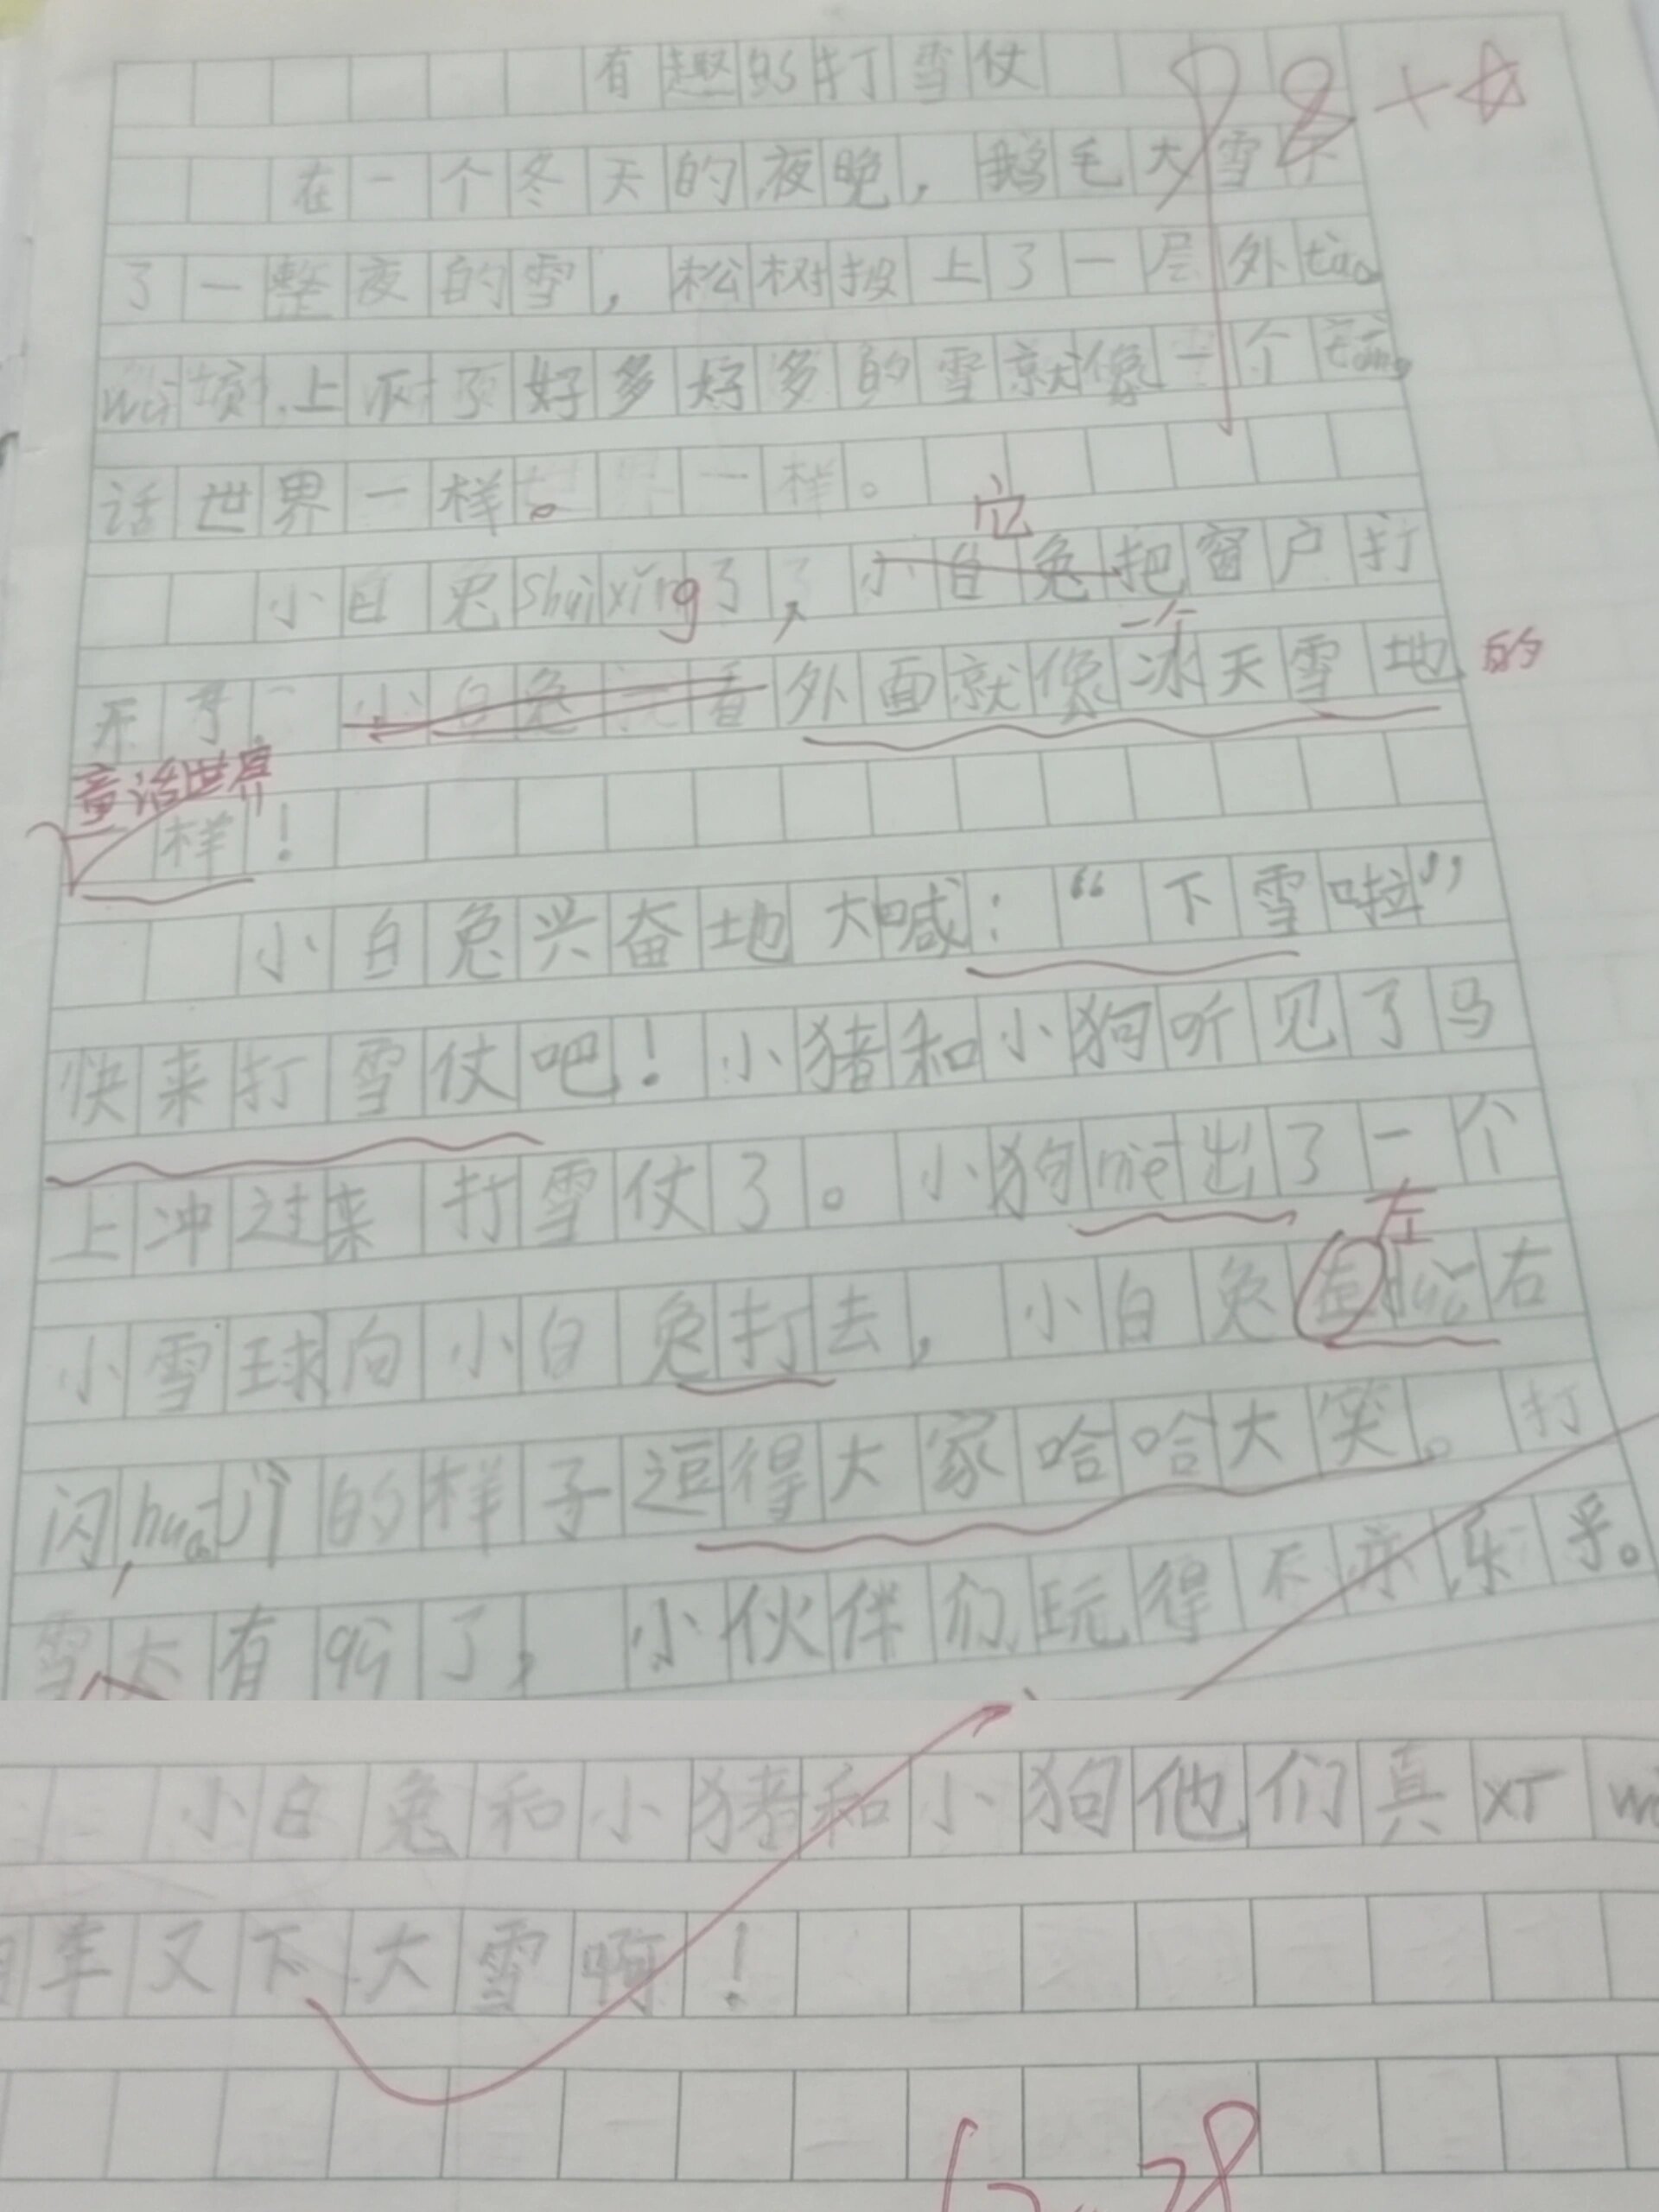 有趣的打雪仗
98+☆
在一个冬天的夜晚，鹅毛大雪下
了一整夜的雪，松树披上了一层外tào
wū顶上 了好多好多的雪就像一个tóng
话世界一样。
它
小白兔shuìxǐng了，小白兔把窗户打
一个
开了 小白兔 看外面就像冰天雪地的
童话世界
一样！
小白兔兴奋地大喊：“下雪啦”
快来打雪仗吧！小猪和小狗听见了马
上冲过来打雪仗了。小狗niē出了一个
左
小雪球向小白兔打去，小白兔 右
闪，huá 的样子逗得大家哈哈大笑。打
雪 有 了，小伙伴们玩得不亦乐乎。
小白兔和小猪和小狗他们真xī
年又下大雪啊！